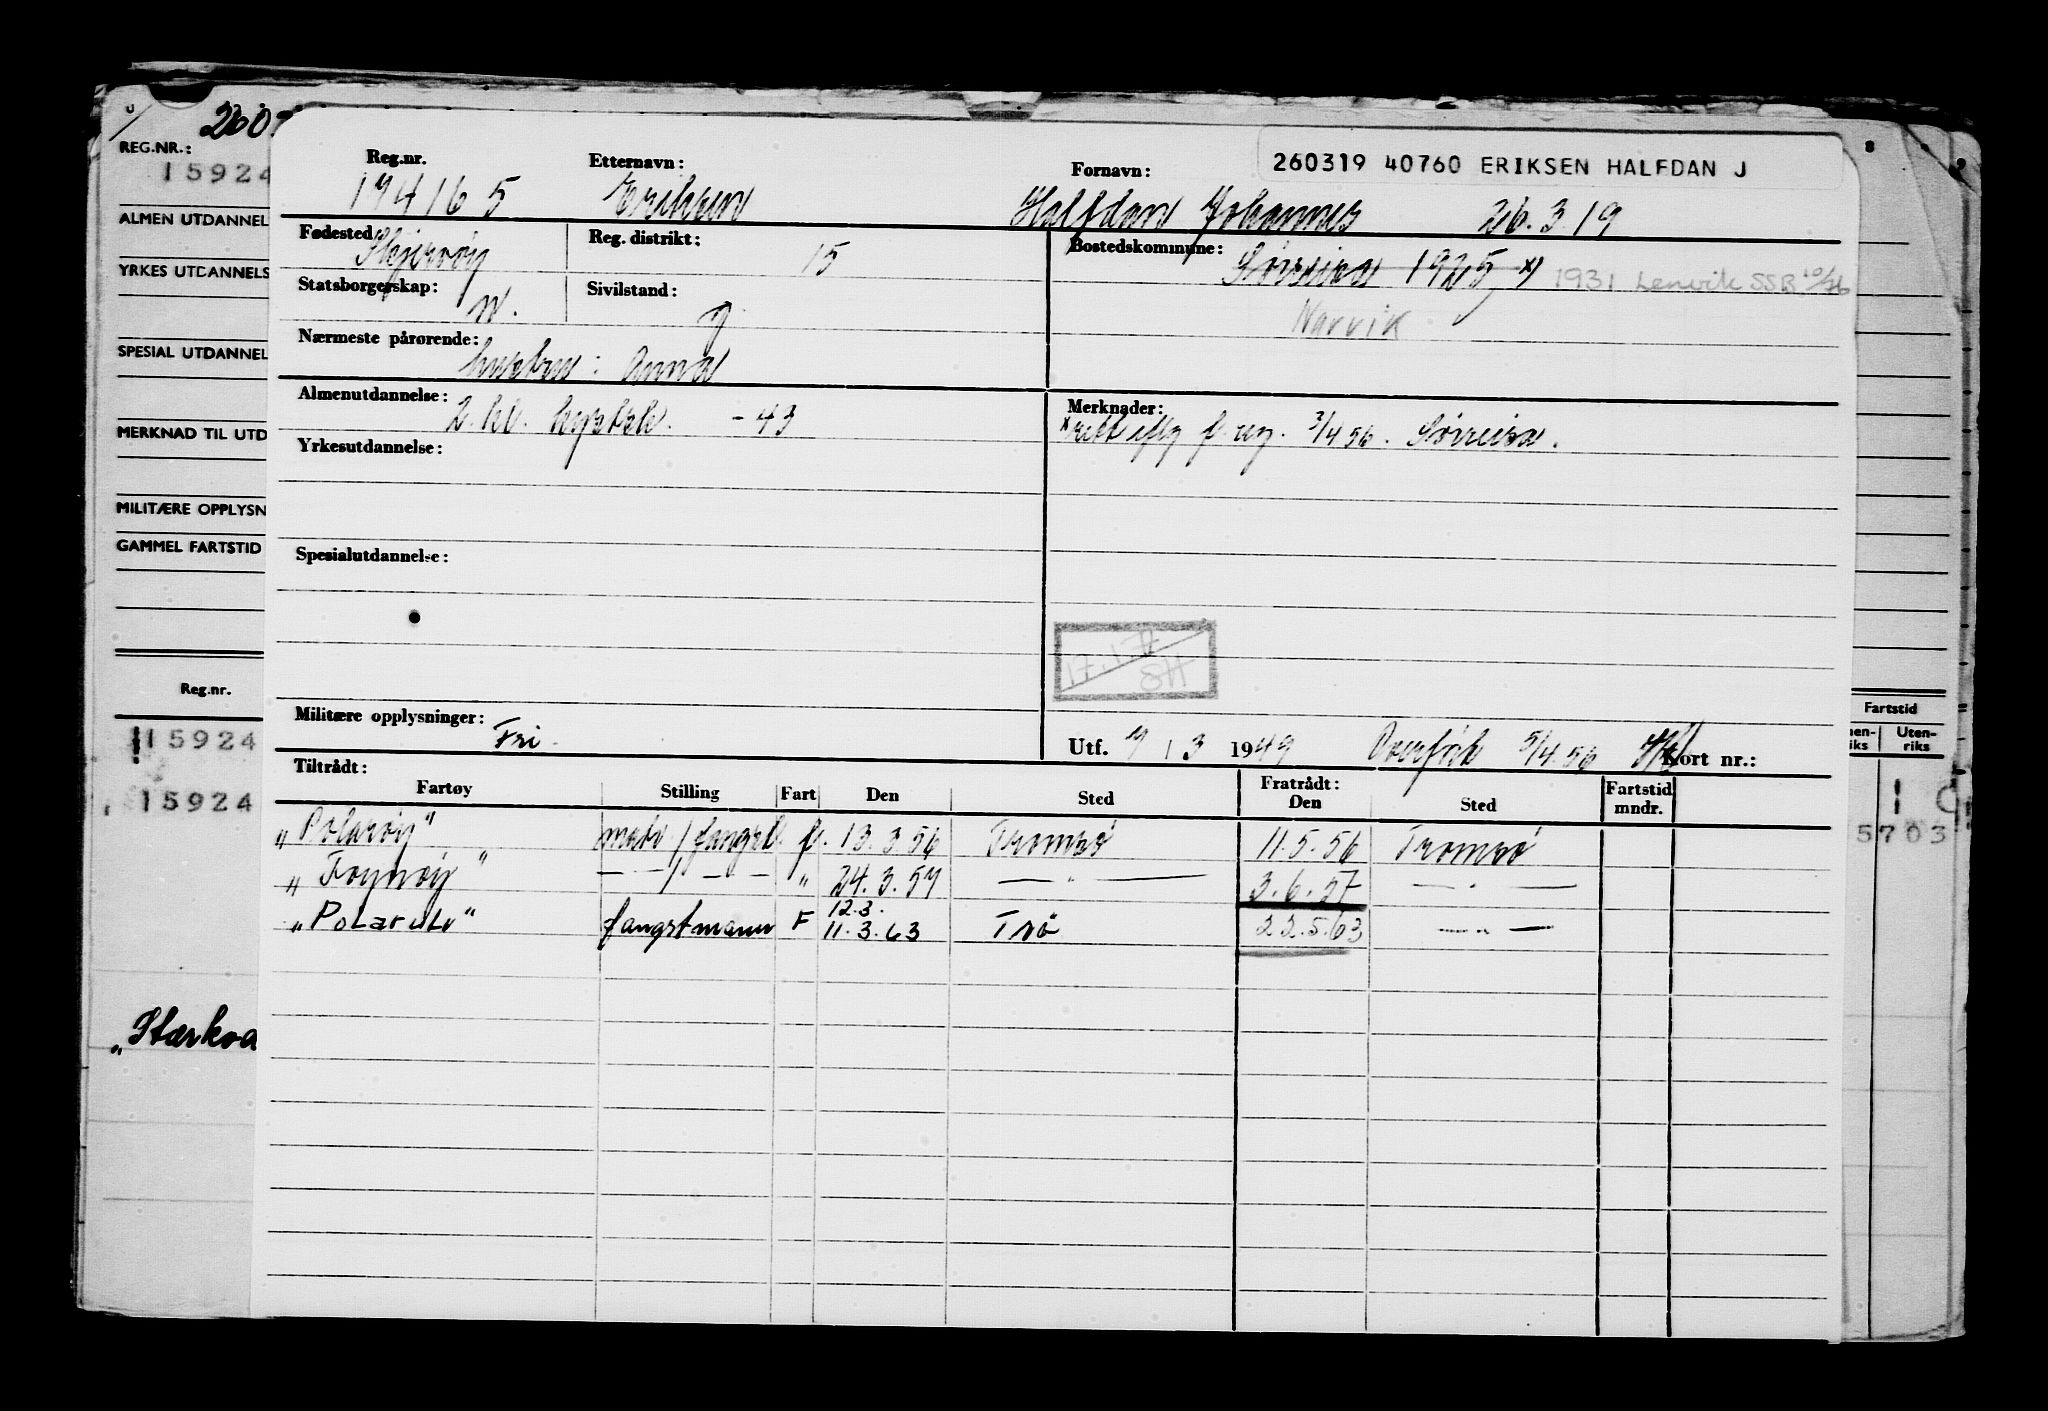 260
REG.NR.:
15924
ALMEN UTDANNEL
YRKES UTDANNELS
SPESIAL UTDANNEL
MERKNAD TIL UTD
MILITÆRE OPPLYSN
GAMMEL FARTSTID
Reg.nr.
15924
15924
„Stærkoa
8
9
Fartstid
nen-
riks
Uten-
riks
5703
260319 40760 ERIKSEN HALFDAN J
Reg.nr. 194165
Etternavn: Eriksen
Fornavn: Halfdan Johannes 26.3.19
Fødested Skjervøy
Reg. distrikt: 15
Bostedskommune: Sørreisa 1925 x) 1931 Lenvik SSB 10/76
Narvik
Statsborgerskap: n.
Sivilstand: g.
Nærmeste pårørende: hustru: Anna
Almenutdannelse: 2 kl. -43
Yrkesutdannelse:
Spesialutdannelse:
Merknader:
x rett iflg f. reg. 3/4 56. Sørreisa.
17.1.77
SH
Militære opplysninger: Fri.
Utf. 7/3 1949 Overført 5/4.56 Kort nr.:
Tiltrådt:
Fartøy Stilling Fart Den Sted Fratrådt: Den Sted Fartstid mndr.
„Polarøy“ matr/fangstm. f. 13.3.56 Tromsø 11.5.56 Tromsø
„Foynøy“ — — / — — „ 24.3.57 — „ — 3.6.57 — „ —
12.3.
„Polarulv“ fangstmann F 11.3.63 Trø 22.5.63 — „ —